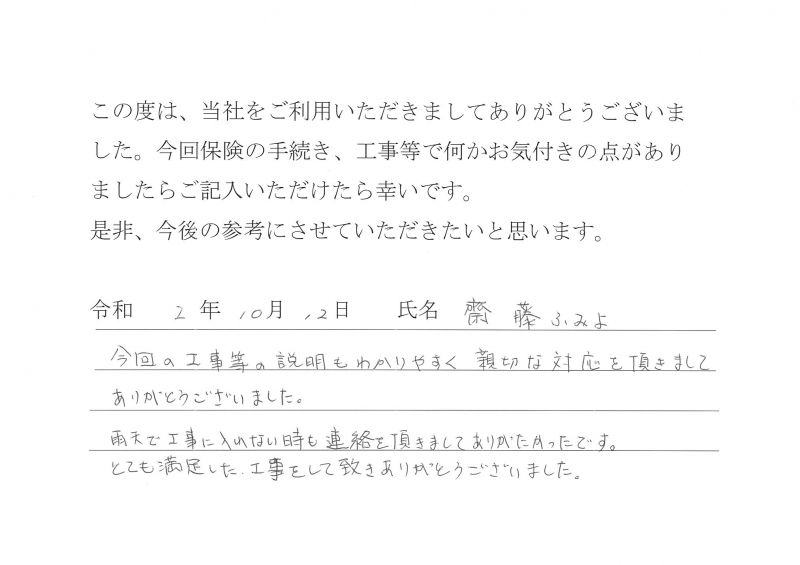 この度は、当社をご利用いただきましてありがとうございま
した。今回保険の手続き、工事等で何かお気付きの点があり
ましたらご記入いただけたら幸いです。
是非、今後の参考にさせていただきたいと思います。
令和 2 年 10月 12日 氏名 齋藤ふみよ
今回の工事等の説明もわかりやすく 親切な対応を頂きまして
ありがとうございました。
雨天で工事に入れない時も連絡を頂きましてありがたかったです。
とても満足した、工事をして致きありがとうございました。